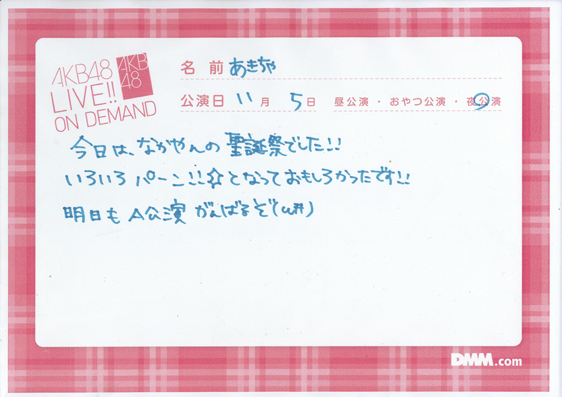 AKB48
LIVE!!
ON DEMAND
AKB
48
名前 あきちゃ
公演日 11月 5日 昼公演・おやつ公演・夜公演
今日は、なかやんの聖誕祭でした!!
いろいろパーン!!☆となっておもしろかったです!!
明日もA公演がんばるぞ
DMM.com